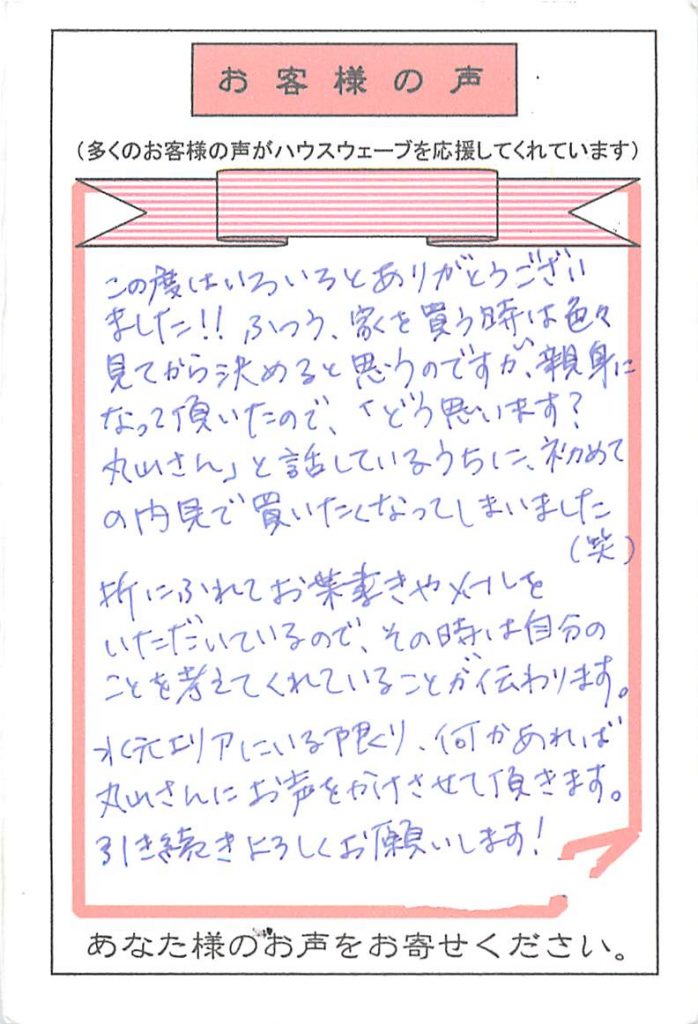 お客様の声
（多くのお客様の声がハウスウェーブを応援してくれています）
この度はいろいろとありがとうござい
ました!! ふつう、家を買う時は色々
見てから決めると思うのですが、親身に
なって頂いたので、「どう思います?
丸山さん」と話しているうちに、初めて
の内見で買いたくなってしまいました
(笑)
折にふれてお葉書きやメールを
いただいているので、その時は自分の
ことを考えてくれていることが伝わります。
水元エリアにいる限り、何かあれば
丸山さんにお声をかけさせて頂きます。
引き続きよろしくお願いします!
あなた様のお声をお寄せください。